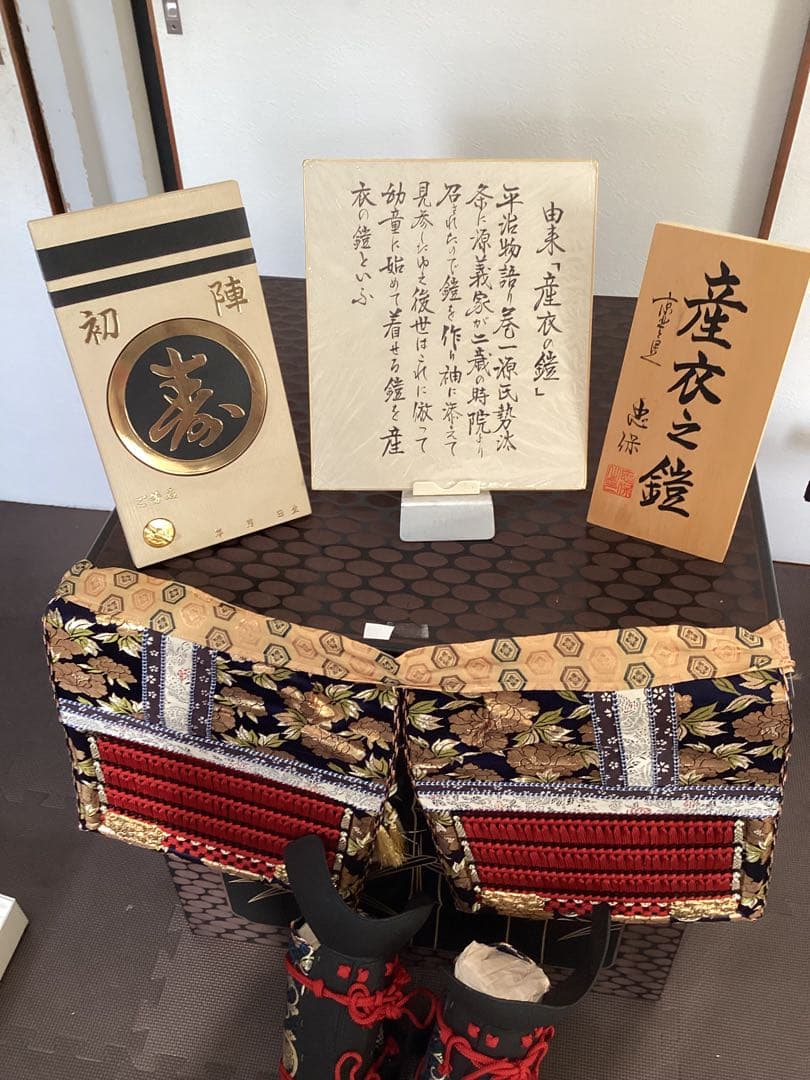 初陣
寿
年月日生
由来「産衣の鎧」
平治物語り巻一源氏勢汰
条に源義家が二歳の時院より
召されたので鎧を作り袖に添えて
見参したゆえ後世はこれに倣って
幼童に始めて着せる鎧を産
衣の鎧といふ
産衣之鎧
忠保